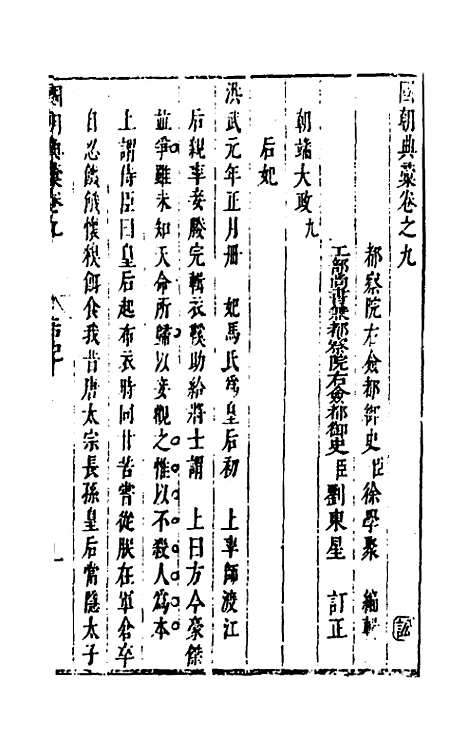 國朝典彙卷之九
都察院右僉都御史臣徐學聚 編輯
工部尚書兼都察院右僉都御史臣劉東星 訂正
朝端大政九
后妃
洪武元年正月冊 妃馬氏爲皇后初 上率師渡江
后親率妾媵完輯衣鞵助給將士謂 上曰方今豪傑
並爭雖未知天命所歸以妾觀之惟以不殺人爲本
上謂侍臣曰皇后起布衣時同甘苦嘗從朕在軍倉卒
自忍饑餓懷糗餌食我昔唐太宗長孫皇后當隱太子
國朝典彙卷九